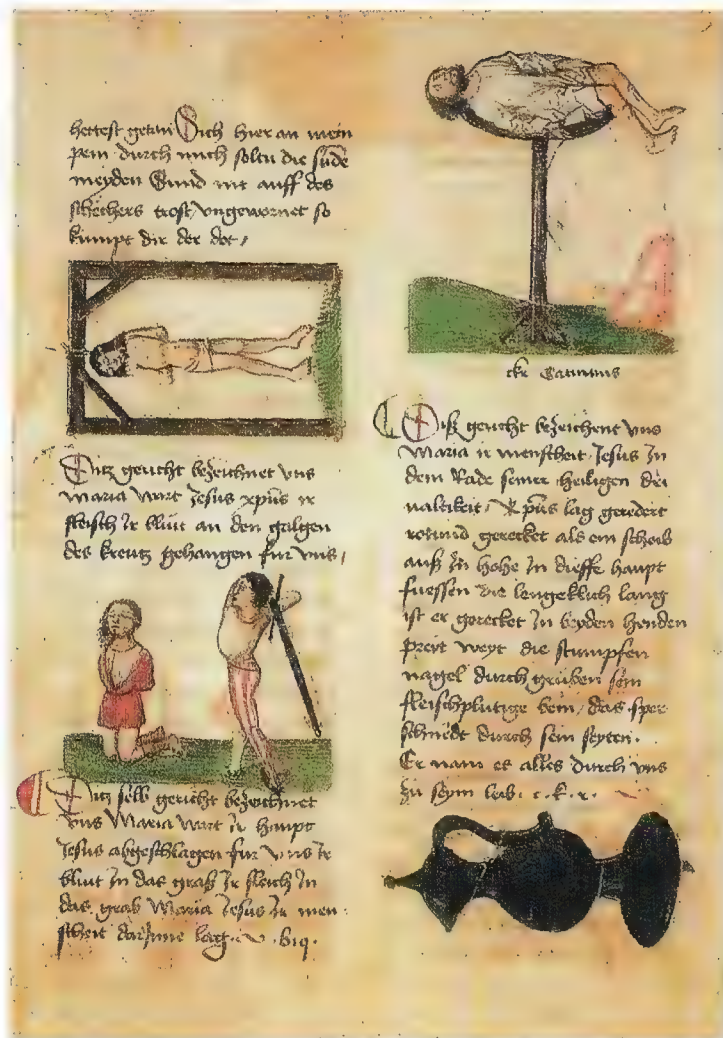 hettest getan Sich hier an mein
pein durch mich soltu die sünde
meyden Vnnd nit auff des
schechers trost, vngewarnet so
kumpt dir der dot,
Ditz gericht bezeichnet vns
Maria wart Jesus xpūs ir
fleisch Ir blüt an den galgen
des kreutz gehangen für vns,
Ditz selb gericht bezeichnet
vns Maria wart Ir haupt
Jesus abgeschlagen für vns Ir
blüt In das graß Ir fleisch In
das grab Maria Jesus Ir men
scheit darInne lag
Diß gericht bezeichent vns
Maria ir menscheit Jesus In
dem Rade seiner heiligen dri
ualtikeit, xpūs lag geredert
rotund gerecket als ein scheib
auß In hohe In dieffe haupt
fuessen die lengeklich lang
ist er gerecket In beyden henden
preit weyt die stumpfen
nagel durch gruben sein
fleischplutige bein, das sper
schneidt durch sein seyten.
Er nam es alles durch vns
zu seym leib. c. k. x.